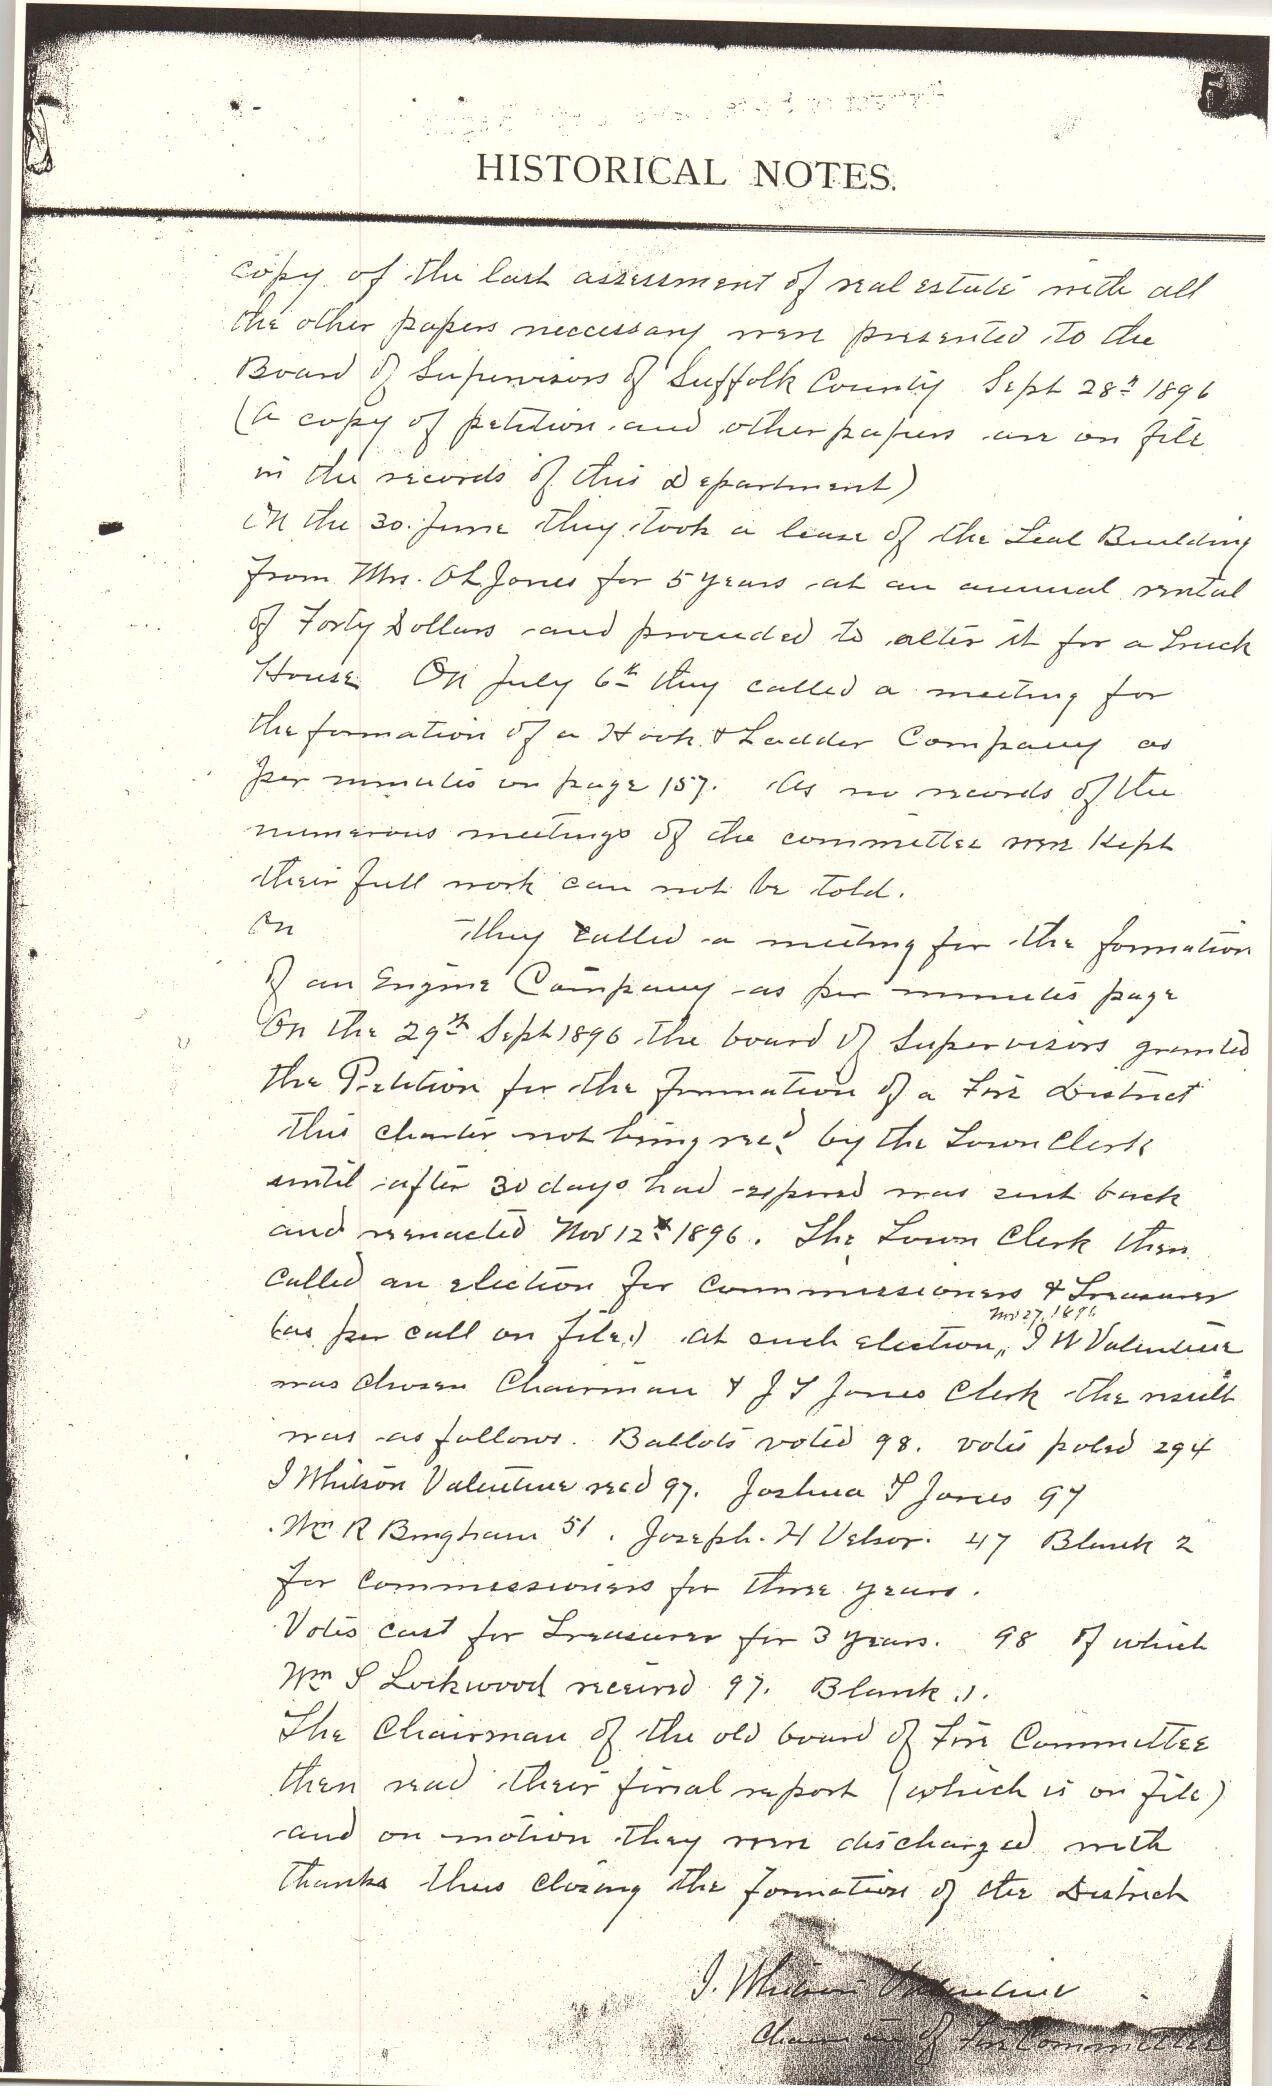 5
HISTORICAL NOTES.
copy of the last assessment of real estate with all
the other papers neccessary were presented to the
Board of Supervisors of Suffolk County Sept 28th 1896
(A copy of petition and other papers are on file
in the records of this Department)
On the 30 June they took a lease of the Leal Building
from Mrs. O L Jones for 5 years at an annual rental
of Forty Dollars and proceeded to alter it for a Truck
House On July 6th they called a meeting for
the formation of a Hook & Ladder Company as
per minutes on page 157. As no records of the
numerous meetings of the committee were kept
their full work can not be told.
On they called a meeting for the formation
of an Engine Company as per minutes page
On the 29th Sept 1896 the board of Supervisors granted
the Petition for the formation of a Fire District
this charter not being recd by the Town Clerk
until after 30 days had expired was sent back
and reenacted Nov 12th 1896. The Town Clerk then
called an election for Commissioners & Treasurer
Nov 27, 1896
(as per call on file.) At such election,, I W Valentine
was chosen Chairman & J T Jones Clerk the result
was as follows. Ballots voted 98. votes poled 294
I Whitson Valentine recd 97. Joshua T Jones 97
Wm R Bingham 51. Joseph. H Velsor. 47 Blank 2
for commissioners for three years.
Votes cast for Treasurer for 3 years. 98 of which
Wm S Lockwood received 97. Blank .1.
The Chairman of the old board of Fire Committee
then read their final report (which is on file)
and on motion they were discharged with
thanks thus closing the formation of the District
I. Whitson Valentine
Chairman of Fire Committee